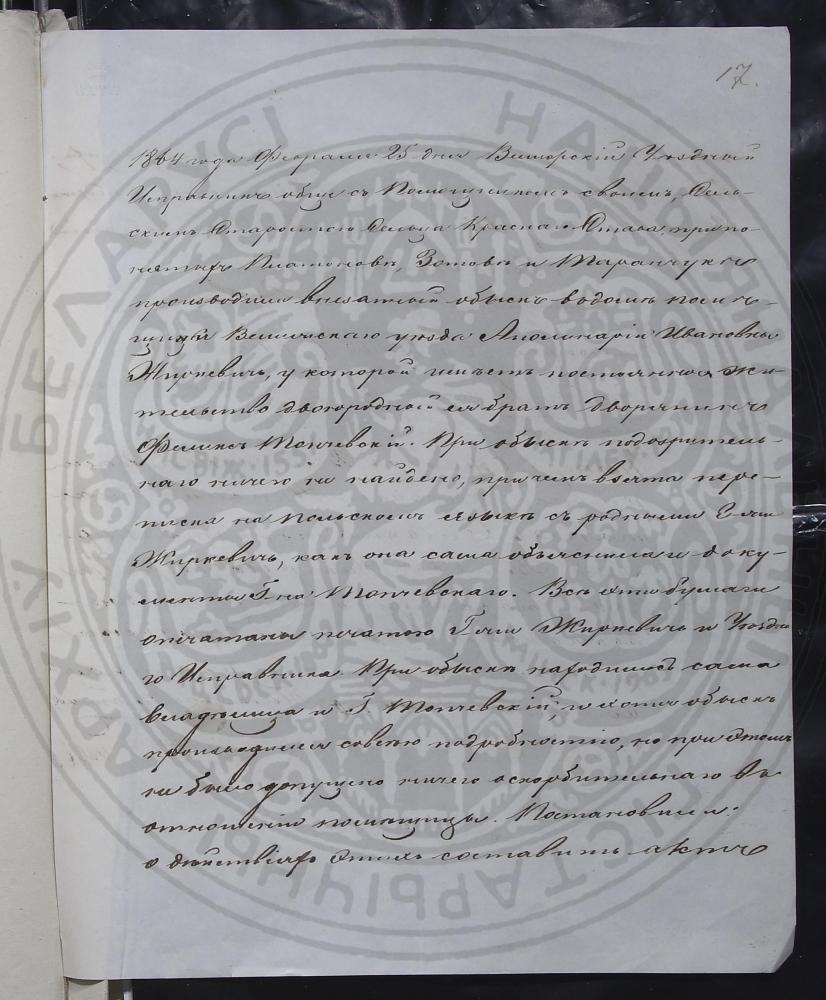 17.
1864 года Февраля 25 дня Велижскій Уѣздный
Исправникъ обще съ Помощникомъ своимъ, Сель-
скимъ Старостою Сельца Красная Става, при по-
нятыхъ Платоновѣ, Зотовѣ и Таранчукѣ
производили внезапный обыскъ въ домѣ помѣ-
щицы Велижскаго уѣзда Аполинаріи Ивановны
Жиркевичь, у которой имѣетъ постоянное жи-
тельство двоюродный ея братъ дворянинъ
Феликсъ Топчевскій. При обыскѣ подозритель-
наго ничего не найдено, причемъ взята пере-
писка на Польскомъ языкѣ съ родными Г-жи
Жиркевичь, какъ она сама объяснила и доку-
менты Г-на Топчевскаго. Всѣ эти бумаги
опечатаны печатью Г-жи Жиркевичь и Уѣздна
го Исправника. При обыскѣ находилась сама
владѣлица и Г. Топчевскій, и хотя обыскъ
производился со всею подробностію, но при этомъ
не было допущено ничего оскорбительнаго въ
отношеніи помѣщицы. Постановили:
о дѣйствіяхъ этихъ составить актъ